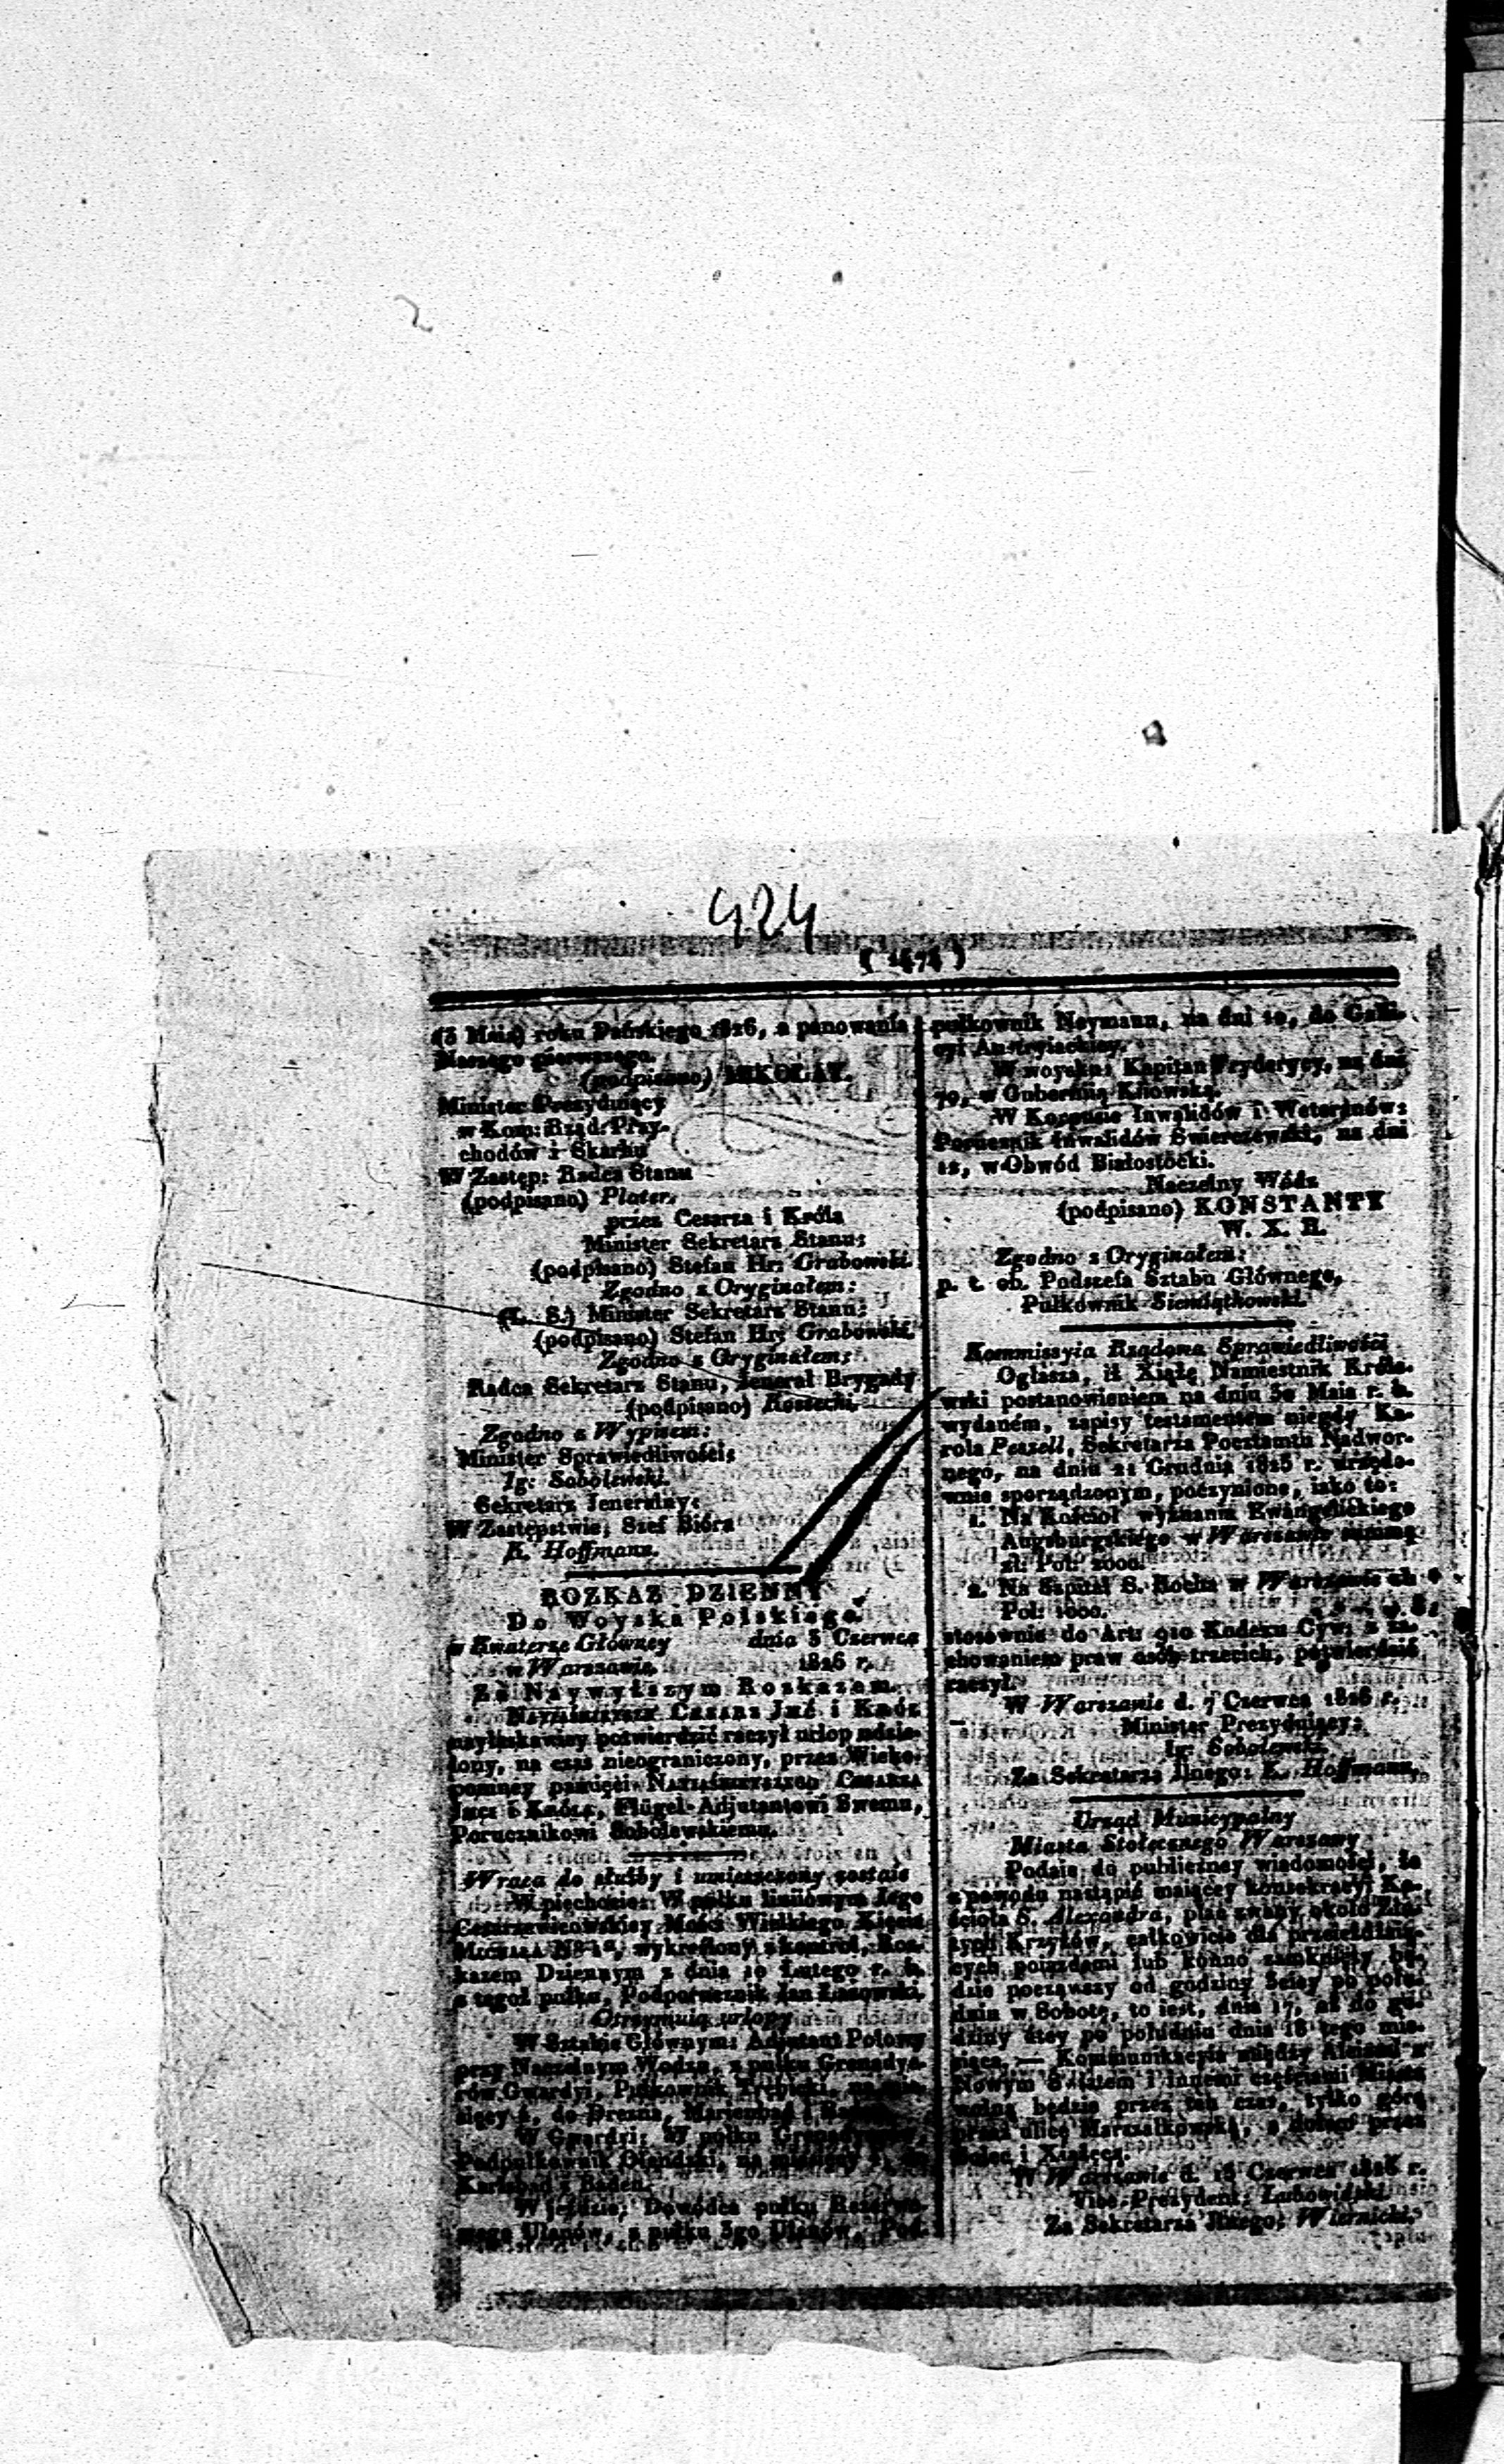 424
( 1474 )
(3 Maia) roku Pańskiego 1826, a panowania
Naszego pierwszego.
(podpisano) MIKOŁAY.
Minister Prezyduiący
w Kom: Rząd: Przy-
chodów i Skarbu
W Zastęp: Radca Stanu
(podpisano) Plater.
przez Cesarza i Króla
Minister Sekretarz Stanu:
(podpisano) Stefan Hr: Grabowski.
Zgodno z Oryginałem:
(L. S.) Minister Sekretarz Stanu:
(podpisano) Stefan Hr: Grabowski.
Zgodno z Oryginałem:
Radca Sekretarz Stanu, Jenerał Brygady
(podpisano) Kossecki.
Zgodno z Wypisem:
Minister Sprawiedliwości:
Ig: Sobolewski.
Sekretarz Jeneralny:
W Zastępstwie; Szef Bióra
K. Hoffmann.
ROZKAZ DZIENNY
Do Woyska Polskiego.
w Kwaterze Główney dnia 3 Czerwca
w Warszawie. 1826 r.
Za Naywyższym Rozkazem.
NAYIAŚNIEYSZY CESARZ JMĆ i KRÓL
nayłaskawiey potwierdzić raczył urlop udzie-
lony, na czas nieograniczony, przez Wieko-
pomney pamięci NAYIAŚNIEYSZEGO CESARZA
JMCI i KRÓLA, Flügel-Adjutantowi Swemu,
Porucznikowi Sobolewskiemu.
Wraca do służby i umieszczony zostaie
W piechocie: W pułku liniiowym Jego
Cesarzewicowskiey Mości Wielkiego Xięcia
MICHAŁA Nº 1º, wykreślony z kontrol, Roz-
kazem Dziennym z dnia 10 Lutego r. b.
z tegoż pułku, Podporucznik Jan Łasowski.
Otrzymuią urlopy
W Sztabie Głównym: Adjutant Polowy
przy Naczelnym Wodzu, z pułku Grenadye-
rów Gwardyi, Pułkownik Trębicki, na mie-
sięcy do Drezna, Marienbad i
W Gwardyi: W pułku Grenadyerów,
Podpułkownik na miesięcy do
Karlsbad i Baden.
W jeździe: Dowódca pułku Rezerwo-
wego Ułanów, z pułku 3go Ułanów, Pod-
pułkownik Neymann, na dni 10, do Galli-
cyi Austryiackiey.
W woysku: Kapitan Fryderycy, na dni
70, w Gubernią Kiiowską.
W Korpusie Inwalidów i Weteranów:
Porucznik Inwalidów Swierczewski, na dni
12, w Obwód Białostocki.
Naczelny Wódz
(podpisano) KONSTANTY
W. X. R.
Zgodno z Oryginałem:
p. t. ob. Podszefa Sztabu Głównego,
Pułkownik Siemiątkowski.
Kommissyia Rządowa Sprawiedliwości
Ogłasza, iż Xiążę Namiestnik Króle-
wski postanowieniem na dniu 30 Maia r. b.
wydaném, zapisy testamentem niegdy Ka-
rola Peszell, Sekretarza Pocztamtu Nadwor-
nego, na dniu 21 Grudnia 1825 r. urzędo-
wnie sporządzonym, poczynione, iako to:
1. Na Kościoł wyznania Ewangelickiego
Augsburgskiego w Warszawie summę
zł: Pol: 2000.
2. Na Szpital S. Rocha w Warszawie zł:
Pol: 1000.
stosownie do Art: 910 Kodexu Cyw: z za-
chowaniem praw osób trzecich, potwierdzić
raczył.
W Warszawie d. 7 Czerwca 1826 r.
Minister Prezyduiący:
Ig: Sobolewski.
Za Sekretarza Jlnego: K. Hoffmann.
Urząd Municypalny
Miasta Stołecznego Warszawy
Podaie do publiczney wiadomości, że
z powodu nastąpić maiącey konsekracyi Ko-
ścioła S. Alexandra, plac zwany około Zło-
tych Krzyżów, całkowicie dla przeieżdżaią-
cych poiazdami lub konno zamknięty bę-
dzie począwszy od godziny po połu-
dniu w Sobotę, to iest, dnia 17, aż do go-
dziny 4tey po południu dnia 18 tego mie-
siąca. — Kommunikacyia między Aleiami z
Nowym Światem i innemi częściami Miasta
wolną będzie przez ten czas, tylko górą
przez ulicę Marszałkowską, a dołem przez
Solec i Xiążęcą.
W Warszawie d. 13 Czerwca 1826 r.
Vice-Prezydent: Lubowidzki.
Za Sekretarza Jlnego: Wiernicki.